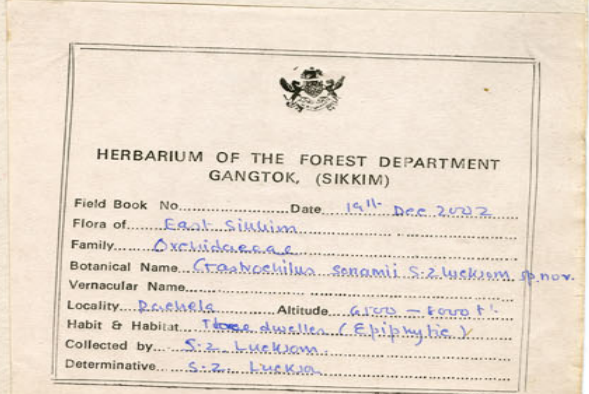 HERBARIUM OF THE FOREST DEPARTMENT
GANGTOK, (SIKKIM)
Field Book No. Date 19th Dec 2002
Flora of East Sikkim
Family Orchidaceae
Botanical Name Gastrochilus sonamii S.Z. Lucksom sp. nov.
Vernacular Name
Locality Altitude 6500 – 8000 ft.
Habit & Habitat Tree dweller (Epiphytic)
Collected by S.Z. Lucksom.
Determinative S.Z.